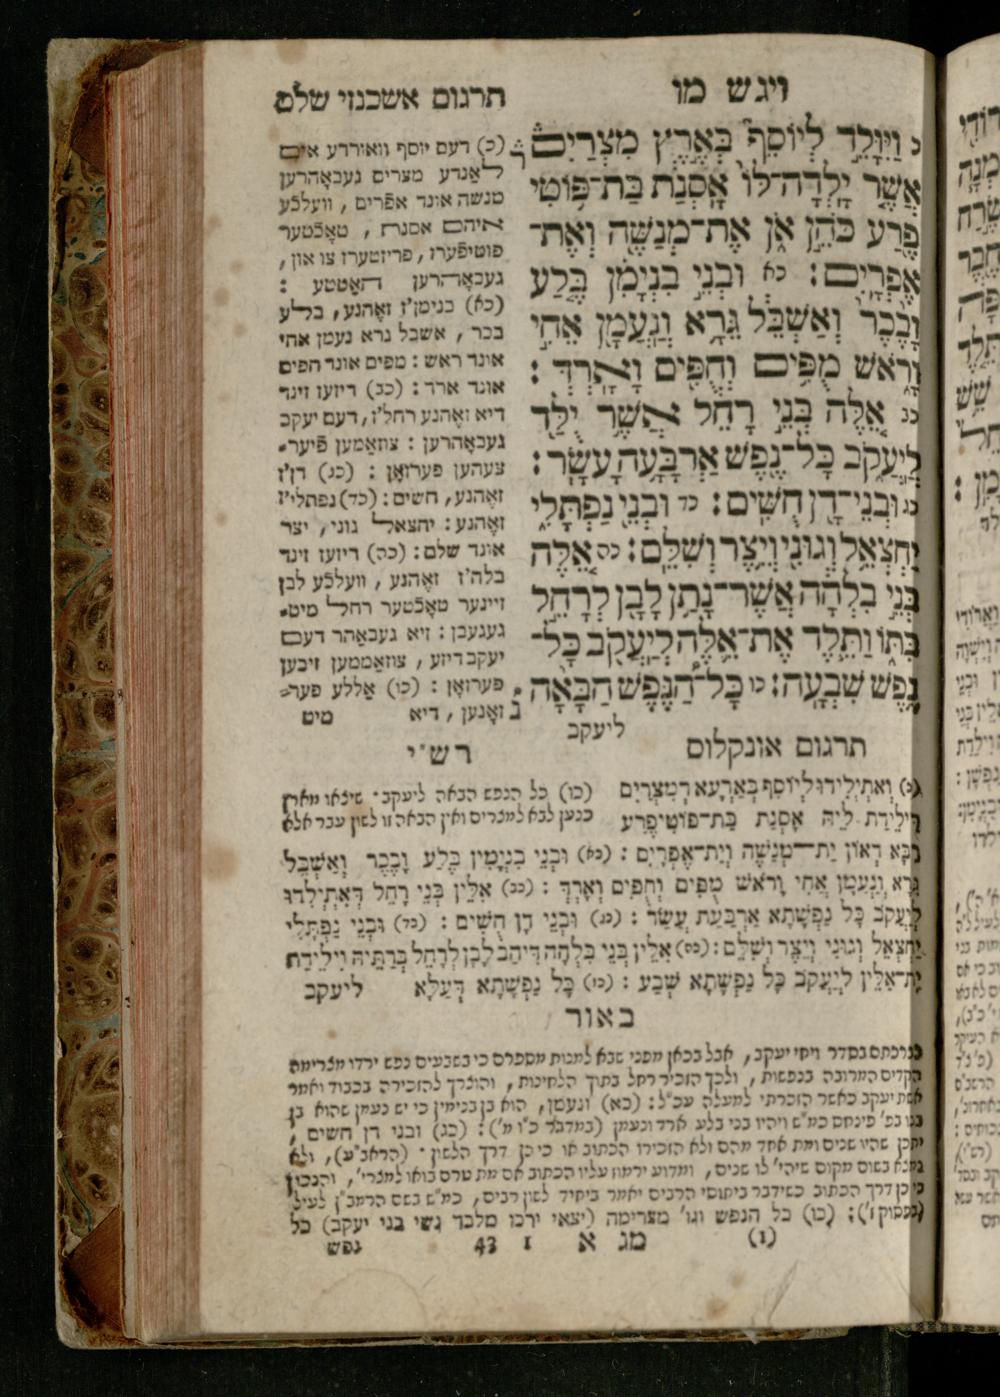 ויגש מו
כ וַיִּוָּלֵ֣ד לְיוֹסֵף֮ בְּאֶ֣רֶץ מִצְרַיִם֒
אֲשֶׁ֤ר יָֽלְדָה־לּוֹ֙ אָֽסְנַ֔ת בַּת־פּ֥וֹטִי
פֶ֖רַע כֹּהֵ֣ן אֹ֑ן אֶת־מְנַשֶּׁ֖ה וְאֶת־
אֶפְרָֽיִם׃ כא וּבְנֵ֣י בִנְיָמִ֗ן בֶּ֤לַע
וָבֶ֙כֶר֙ וְאַשְׁבֵּ֔ל גֵּרָ֥א וְנַעֲמָ֖ן אֵחִ֣י
וָרֹ֑אשׁ מֻפִּ֥ים וְחֻפִּ֖ים וָאָֽרְדְּ׃
כב אֵ֚לֶּה בְּנֵ֣י רָחֵ֔ל אֲשֶׁ֥ר יֻלַּ֖ד
לְיַעֲקֹ֑ב כָּל־נֶ֖פֶשׁ אַרְבָּעָ֥ה עָשָֽׂר׃
כג וּבְנֵי־דָ֖ן חֻשִֽׁים׃ כד וּבְנֵ֖י נַפְתָּלִ֑י
יַחְצְאֵ֥ל וְגוּנִ֖י וְיֵ֥צֶר וְשִׁלֵּֽם׃ כה אֵ֚לֶּה
בְּנֵ֣י בִלְהָ֔ה אֲשֶׁר־נָתַ֥ן לָבָ֖ן לְרָחֵ֣ל
בִּתּ֑וֹ וַתֵּ֧לֶד אֶת־אֵ֛לֶּה לְיַעֲקֹ֖ב כָּל־
נֶ֥פֶשׁ שִׁבְעָֽה׃ כו כָּל־הַ֠נֶּ֠פֶשׁ הַבָּאָ֨ה
ליעקב
תרגום אשכנזי שלם
(כ) דעם יוסף וואורדע אים
לאַנדע מצרים געבאָהרען
מנשה אונד אפרים, וועלכֿע
איהם אסנת, טאָכֿטער
פוטיפֿערז, פריזטערז צו און,
געבאָהרען האַטטע :
(כא) בנימן'ז זאָהנע, בלע
בכר, אשבל גרא נעמן אחי
אונד ראש : מפים אונד חפים
אונד ארד : (כב) דיזען זינד
דיא זאָהנע רחל'ז, דעם יעקב
געבאָהרען : צוזאַמען פֿיער־
צעהען פערזאָן : (כג) דן'ז
זאָהנע, חשים : (כד) נפתלי'ז
זאָהנע : יחצאל גוני, יצר
אונד שלם : (כה) דיזען זינד
בלה'ז זאָהנע, וועלכֿע לבן
זיינער טאָכֿטער רחל מיט־
געגעבן : זיא געבאַהר דעם
יעקב דיזע, צוזאַממען זיבען
פערזאָן : (כו) אַללע פער־
זאָנען, דיא מיט
תרגום אונקלוס
(כ) וְאִתְיְלִידוּ לְיוֹסֵף בְּאַרְעָא דְמִצְרַיִם
דִּילֵידַת לֵיהּ אָסְנַת בַּת־פּוֹטִיפֶרַע
רַבָּא דְאוֹן יַת־מְנַשֶּׁה וְיַת־אֶפְרָיִם : (כא) וּבְנֵי בִנְיָמִין בֶּלַע וָבֶכֶר וְאַשְׁבֵּל
גֵּרָא וְנַעֲמָן אֵחִי וָרֹאשׁ מֻפִּים וְחֻפִּים וָאָרְדְּ : (כב) אִלֵּין בְּנֵי רָחֵל דְּאִתְיְלִידוּ
לְיַעֲקֹב כָּל נַפְשָׁתָא אַרְבַּעַת עֲשַׂר : (כג) וּבְנֵי דָן חֻשִׁים : (כד) וּבְנֵי נַפְתָּלִי
יַחְצְאֵל וְגוּנִי וְיֵצֶר וְשִׁלֵּם : (כה) אִלֵּין בְּנֵי בִלְהָה דִּיהַב לָבָן לְרָחֵל בְּרַתֵּיהּ וִילֵידַת
יָת־אִלֵּין לְיַעֲקֹב כָּל נַפְשָׁתָא שְׁבַע : (כו) כָּל נַפְשָׁתָא דְעַלָא ליעקב
רש"י
(כו) כל הנפש הבאה ליעקב. שיצאו מארץ
כנען לבא למצרים ואין הבאה זו לשון עבר אלא
באור
כברכתם בסדר ויחי יעקב, אבל בכאן מפני שבא למנות מספרם כי בשבעים נפש ירדו מצרימה
הקדים המרובה בנפשות, ולכך הזכיר רחל בתוך הלחינות, והוצרך להזכירה בכבוד ואמר
אשת יעקב כאשר הזכרתי למעלה עכ"ל : (כא) ונעמן, הוא בן בנימין כי יש נעמן שהוא בן
בנו בפ' פינחס כמ"ש ויהיו בני בלע ארד ונעמן (במדבר כ"ו מ') : (כג) ובני דן חשים,
יתכן שהיו שנים ומת אחד מהם ולא הזכירו הכתוב או כי כן דרך הלשון. (הראב"ע), ולא
נמצא בשום מקום שיהי' לו שנים, ומדוע ירמוז עליו הכתוב אם מת טרם בואו למצרי', והנכון
כי כן דרך הכתוב כשידבר ביחוסי הרבים יאמר ביחיד לשון רבים, כמ"ש בשם הרמב"ן לעיל
(בפסוק ז') : (כו) כל הנפש וגו' מצרימה (יצאי ירכו מלבד נשי בני יעקב) כל
(1) מג א 1 43 נפש